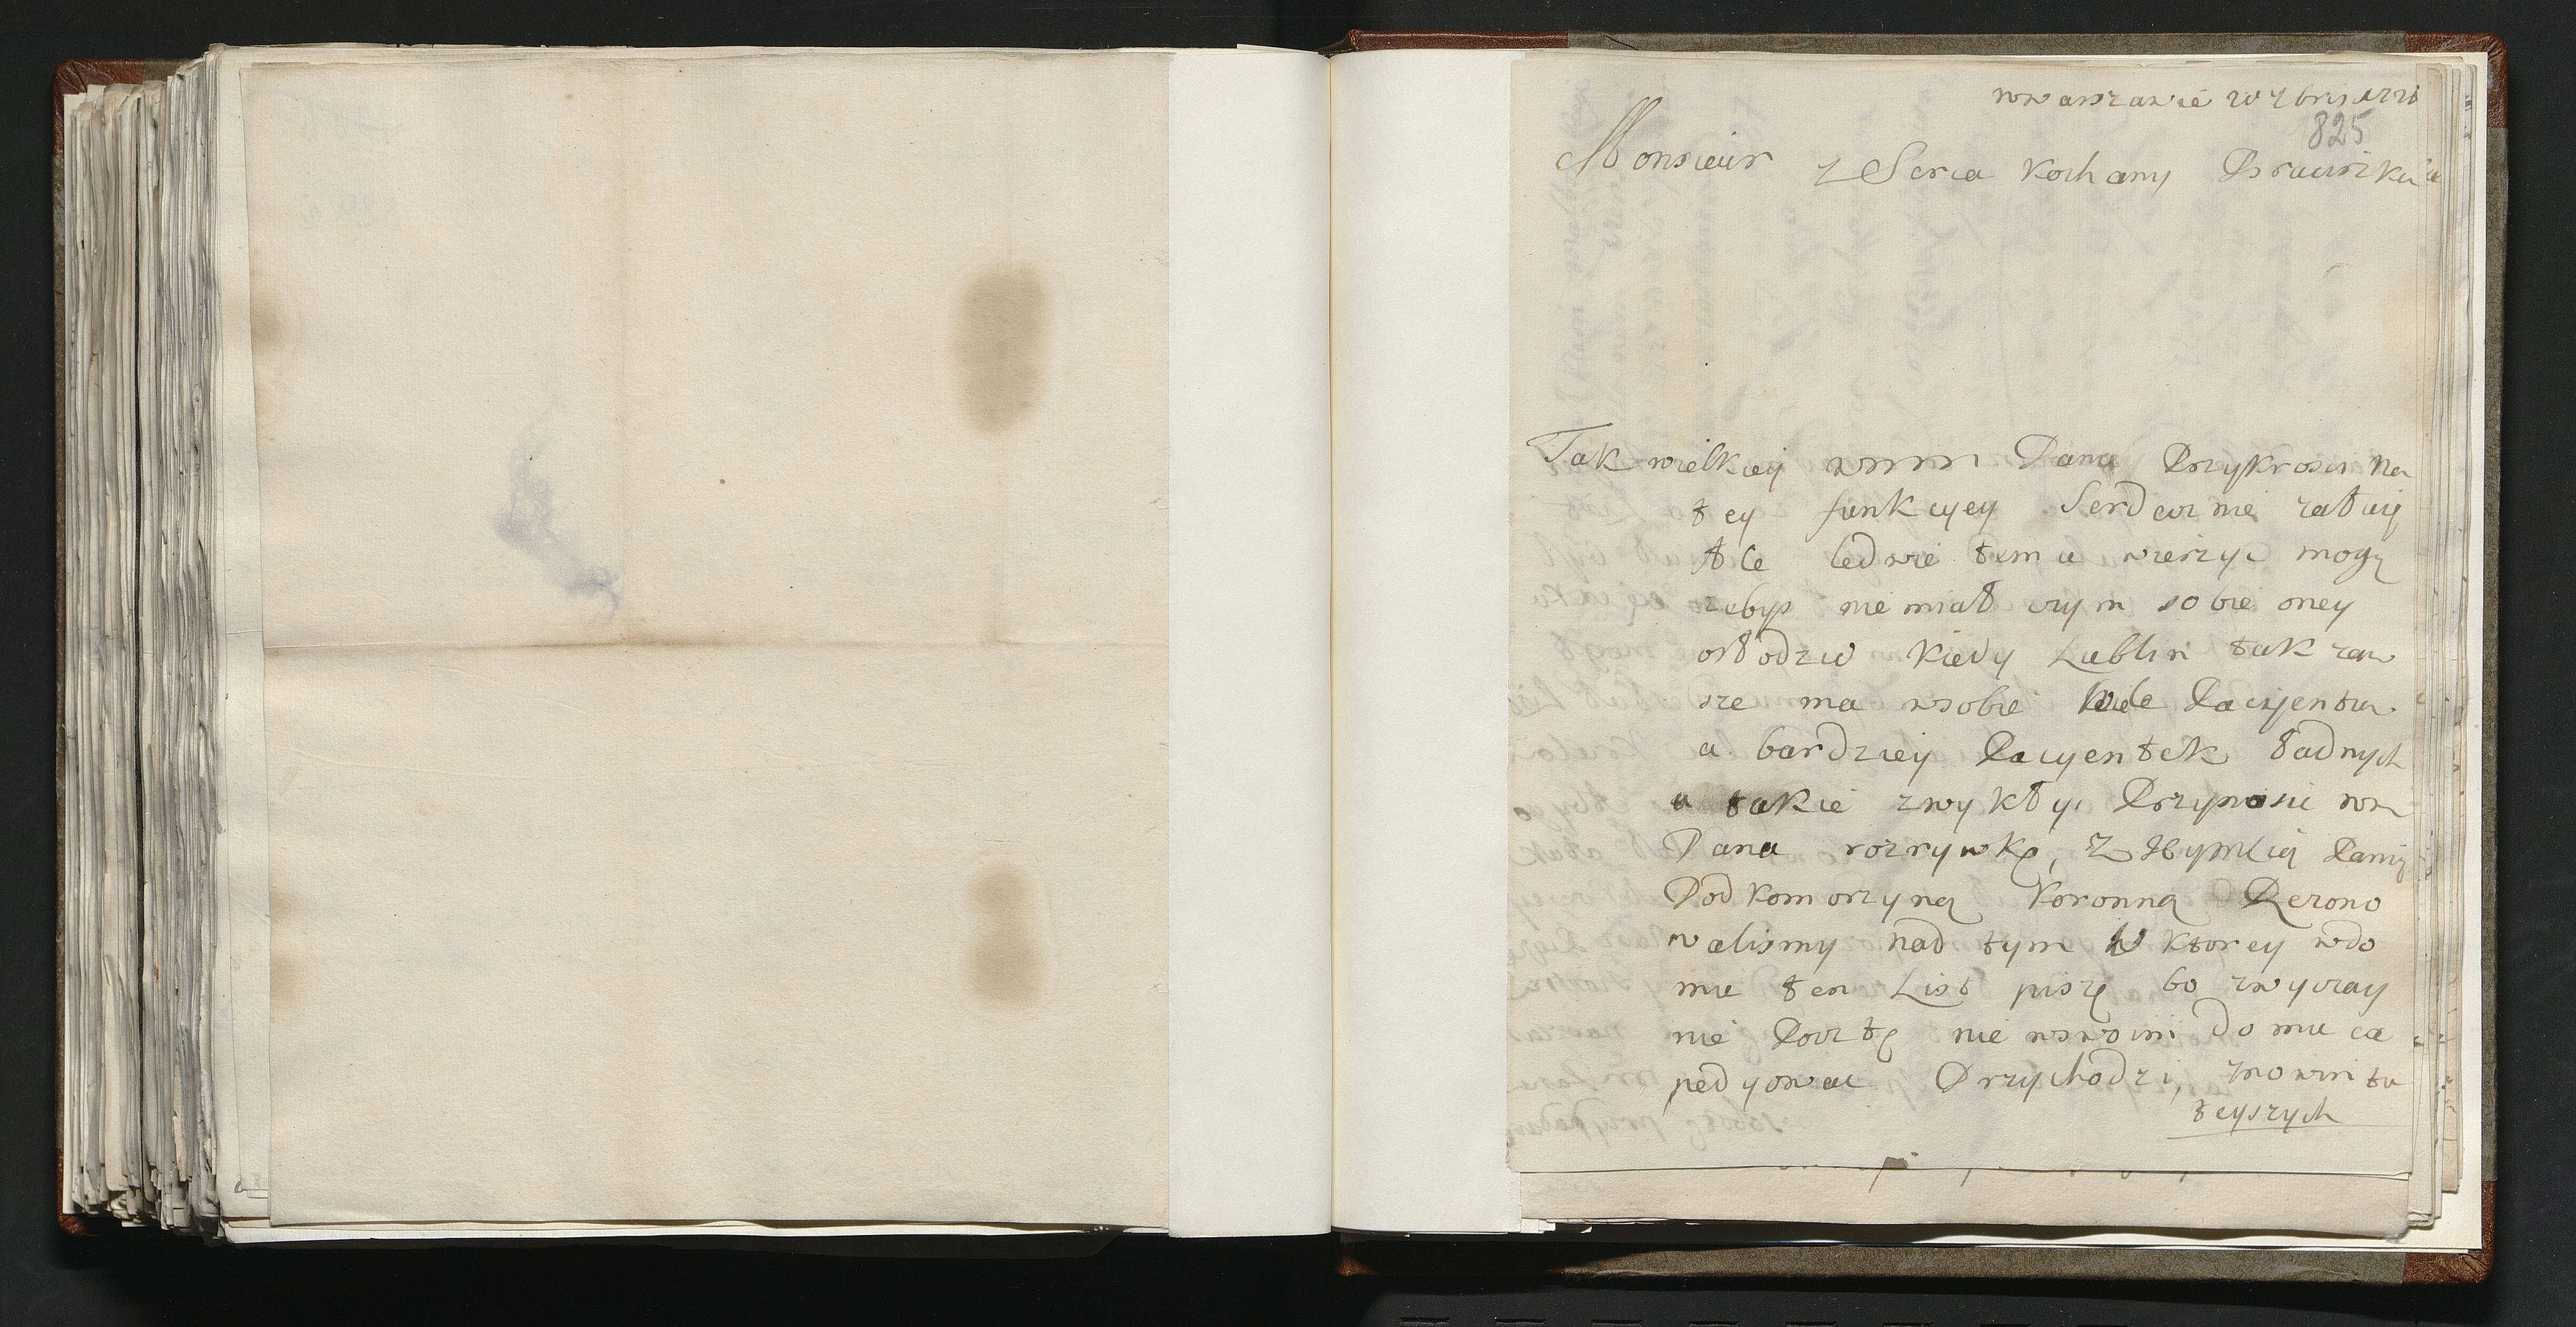 w warszawie 20 7bris 1720
825
Monsieur z Serca kochany Braciszku
Tak wielkiey wmm Pana Przykrosci na
tey funkcyey Serdecznie załuię
Ale ledwie temu wierzyc mogę
zebys nie miał czym sobie oney
osłodzic kiedy Lublin tak zaw
sze ma wsobie wiele Pacyentow
a bardziey Pacyentek ładnych
a takie zwykły Przynosic wm
Pana rozrywkę, z Jeymcią Panią
Podkomorzyną Koronną Rezono
walismy nad tym W ktorey wdo
mu ten List piszę bo zwyczay
nie Pocztę nie wswoim domu ex
pedyowac Przychodzi, znowin tu
teyszych